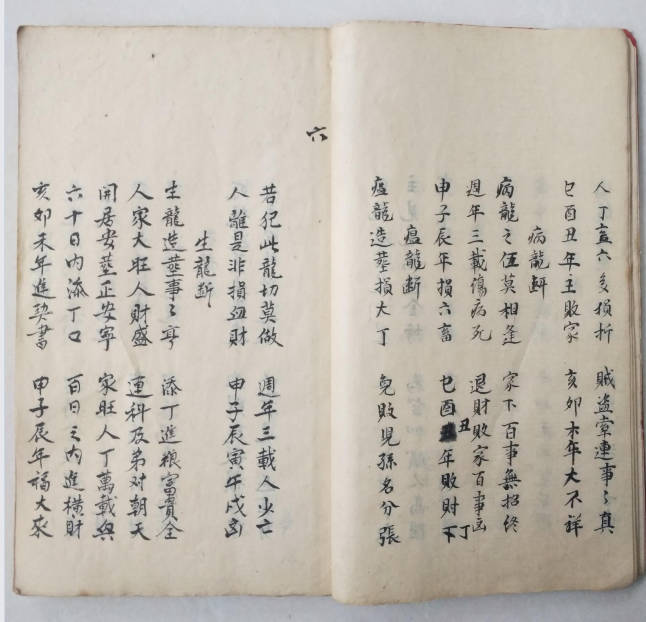 人丁六多損折 賊盜牽連事々真
巳酉丑年主敗家 亥卯未年大不祥
病龍斷
病龍之位莫相逢 家下百事無招終
週年三載傷病死 退財敗家百事凶
申子辰年損六畜 巳酉丑年敗財丁
瘟龍斷
瘟龍造塋損大丁 敗兒孫各分張
六
若犯此龍切莫做 週年三載人少亡
人離是非損血財 申子辰寅午戌凶
生龍斷
生龍造塋事々亨 添丁進粮富貴全
人家大旺人財盛 連科及第对朝天
開居安塋正安寧 家旺人丁萬載興
六十日內添丁口 百日之內進橫財
亥卯未年進契書 申子辰年福大來